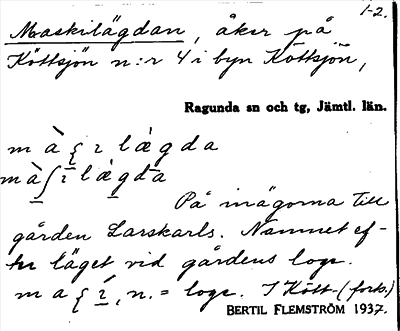 1-2.
Maskilägdan, åker på
Köttsjön n:r 4 i byn Köttsjön,
Ragunda sn och tg, Jämtl. län.
m à ʃ ɪ l ὰ g d a
m à ʃ ɪ l ὰ g d a
På inägorna till
gården Larskarls. Namnet ef-
ter läget vid gårdens loge.
n. = loge. I Kött- (forts.)
BERTIL FLEMSTRÖM 1937.